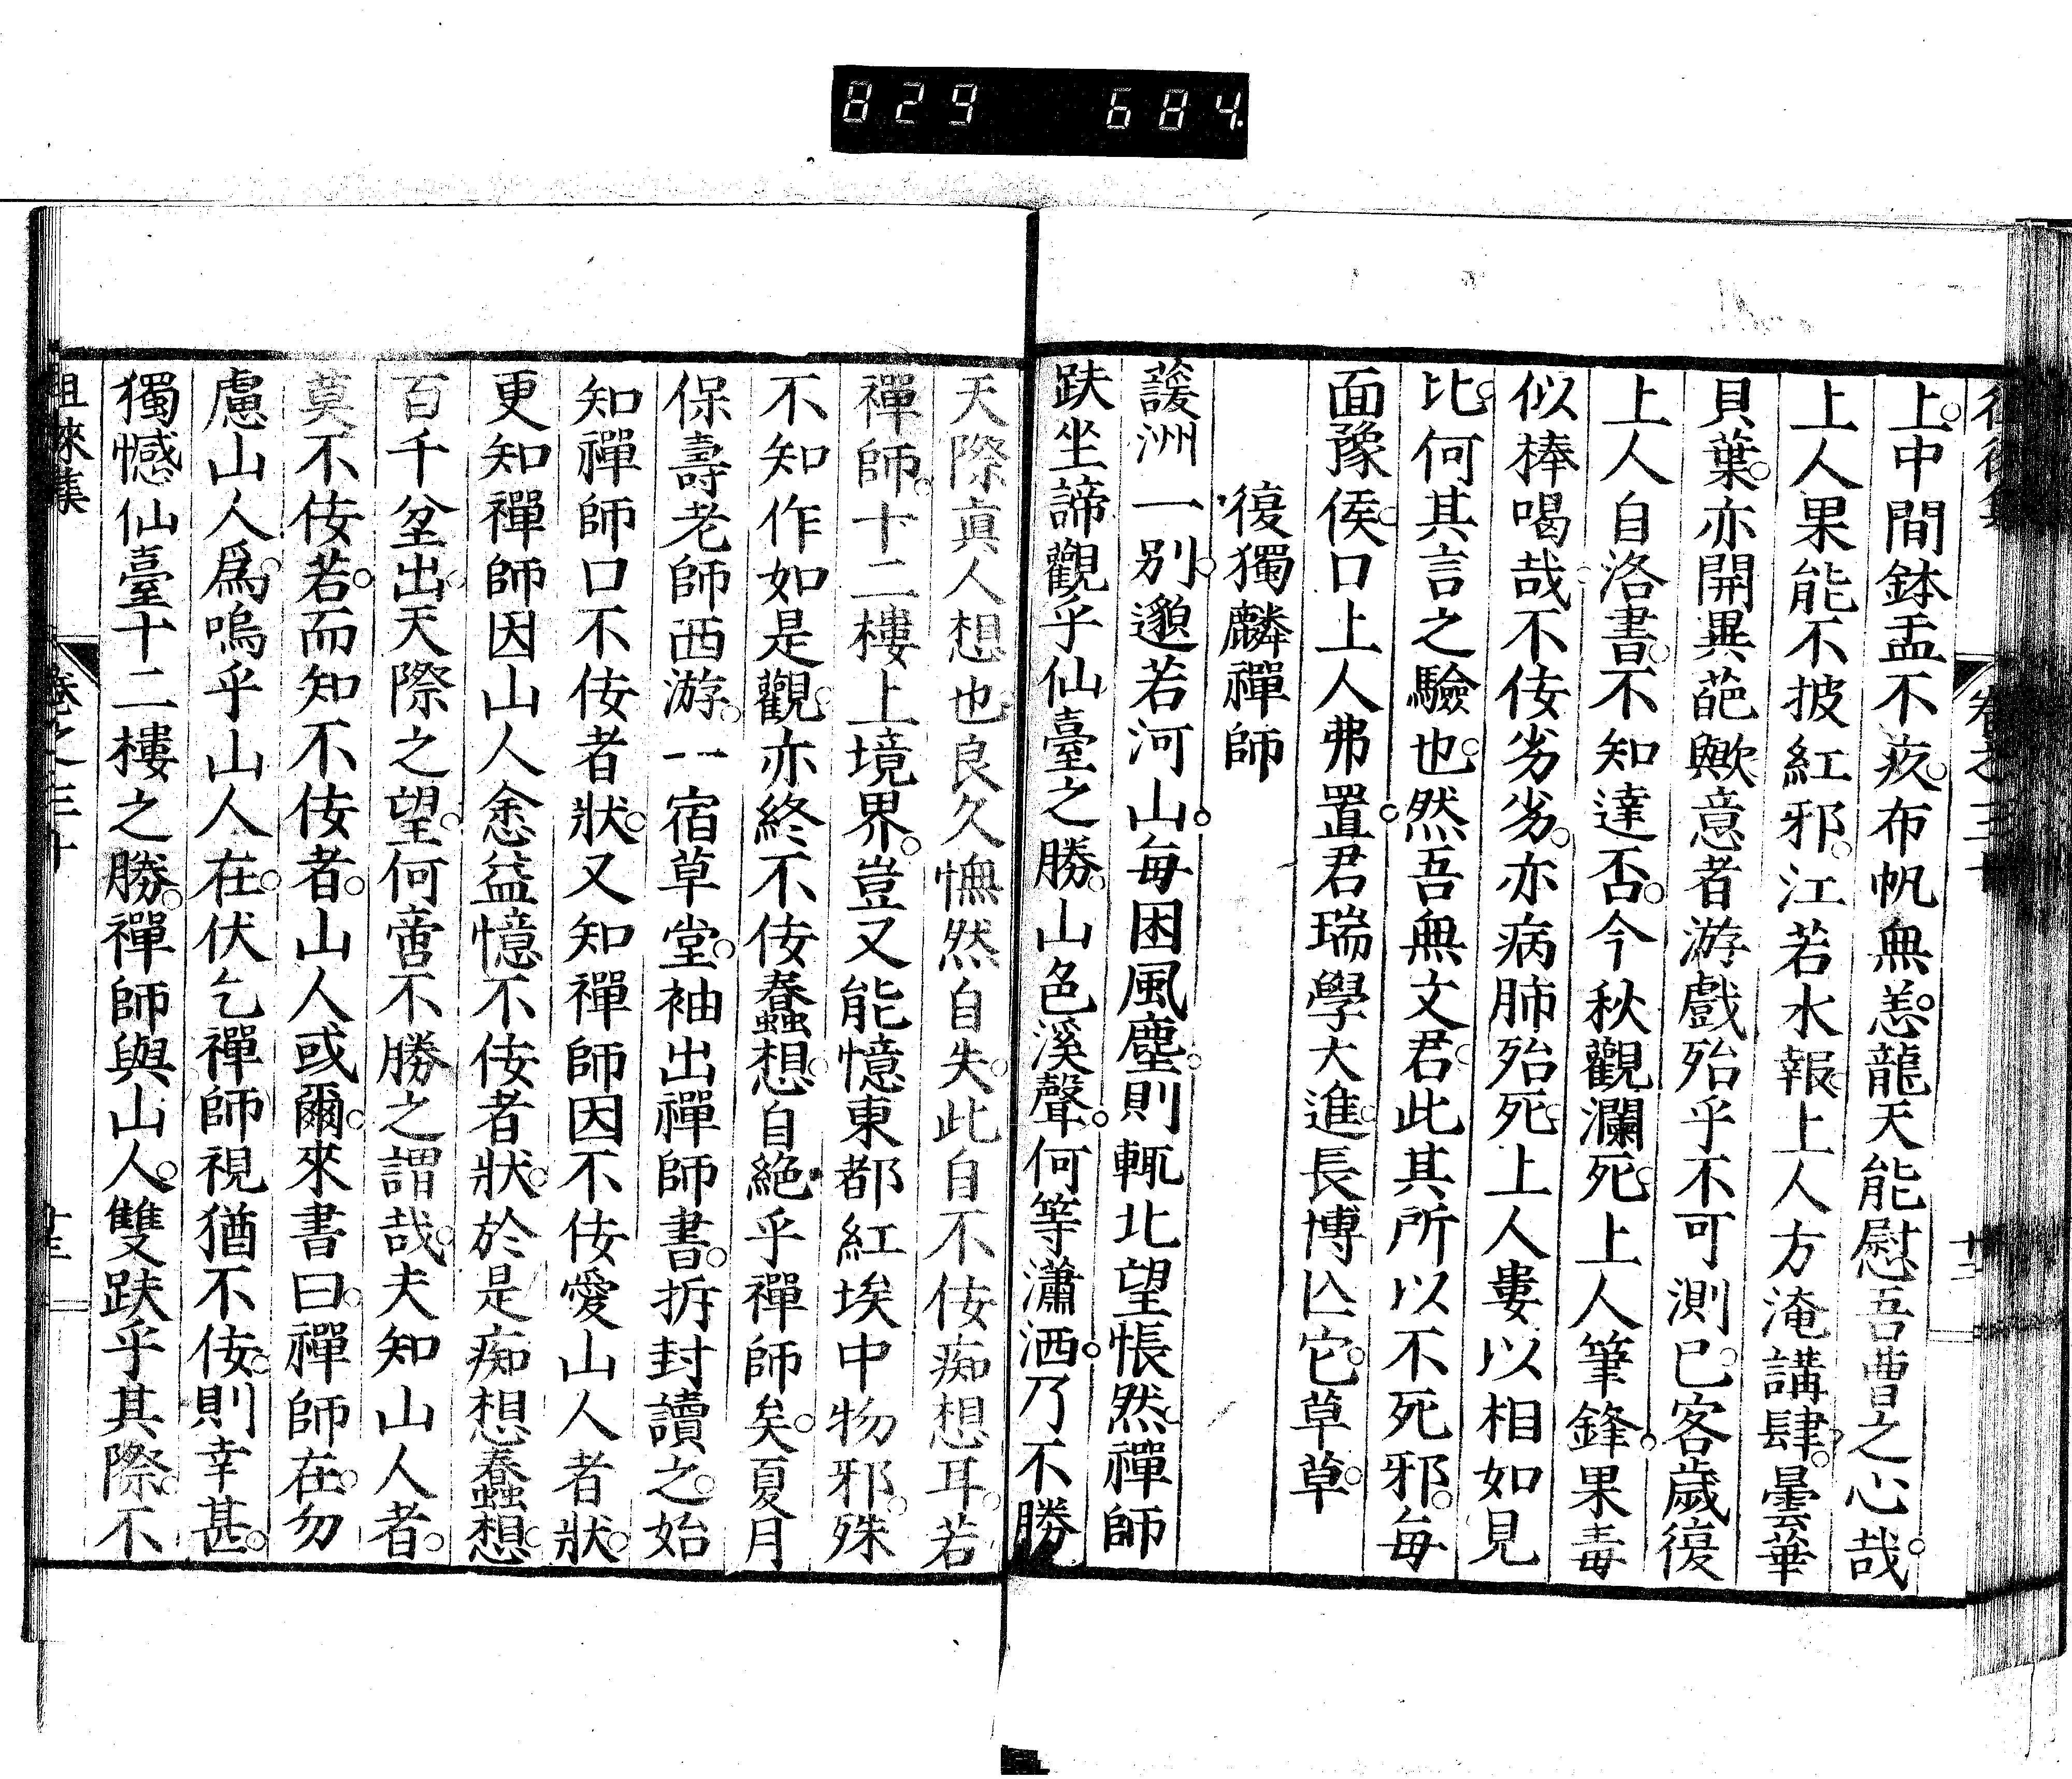 829 684
上中間鉢盂不疚布帆無恙龍天能慰吾曹之心哉
上人果能不披紅邪江若水報上人方淹講肆曇華
貝葉亦開異葩歟意者游戲殆乎不可測已客歲復
上人自洛書不知達否今秋觀瀾死上人筆鋒果毒
似棒喝哉不佞劣劣亦病肺殆死上人婁以相如見
比何其言之驗也然吾無文君此其所以不死邪每
面豫侯口上人弗置君瑞學大進長博亾它草草
復獨麟禪師
蘐洲一別邈若河山每困風塵則輒北望悵然禪師
趺坐諦觀乎仙臺之勝山色溪聲何等瀟洒乃不勝
天際眞人想也良久憮然自失此自不佞痴想耳若
禪師十二樓上境界豈又能憶東都紅埃中物邪殊
不知作如是觀亦終不佞蠢想自絶乎禪師矣夏月
保壽老師西游一宿草堂袖出禪師書拆封讀之始
知禪師口不佞者狀又知禪師因不佞愛山人者狀
更知禪師因山人悆益憶不佞者狀於是痴想蠢想
百千坌出天際之望何啻不勝之謂哉夫知山人者
莫不佞若而知不佞者山人或爾來書曰禪師在勿
慮山人爲嗚乎山人在伏乞禪師視猶不佞則幸甚
獨憾仙臺十二樓之勝禪師與山人雙趺乎其際不
徂徠集 卷之三十